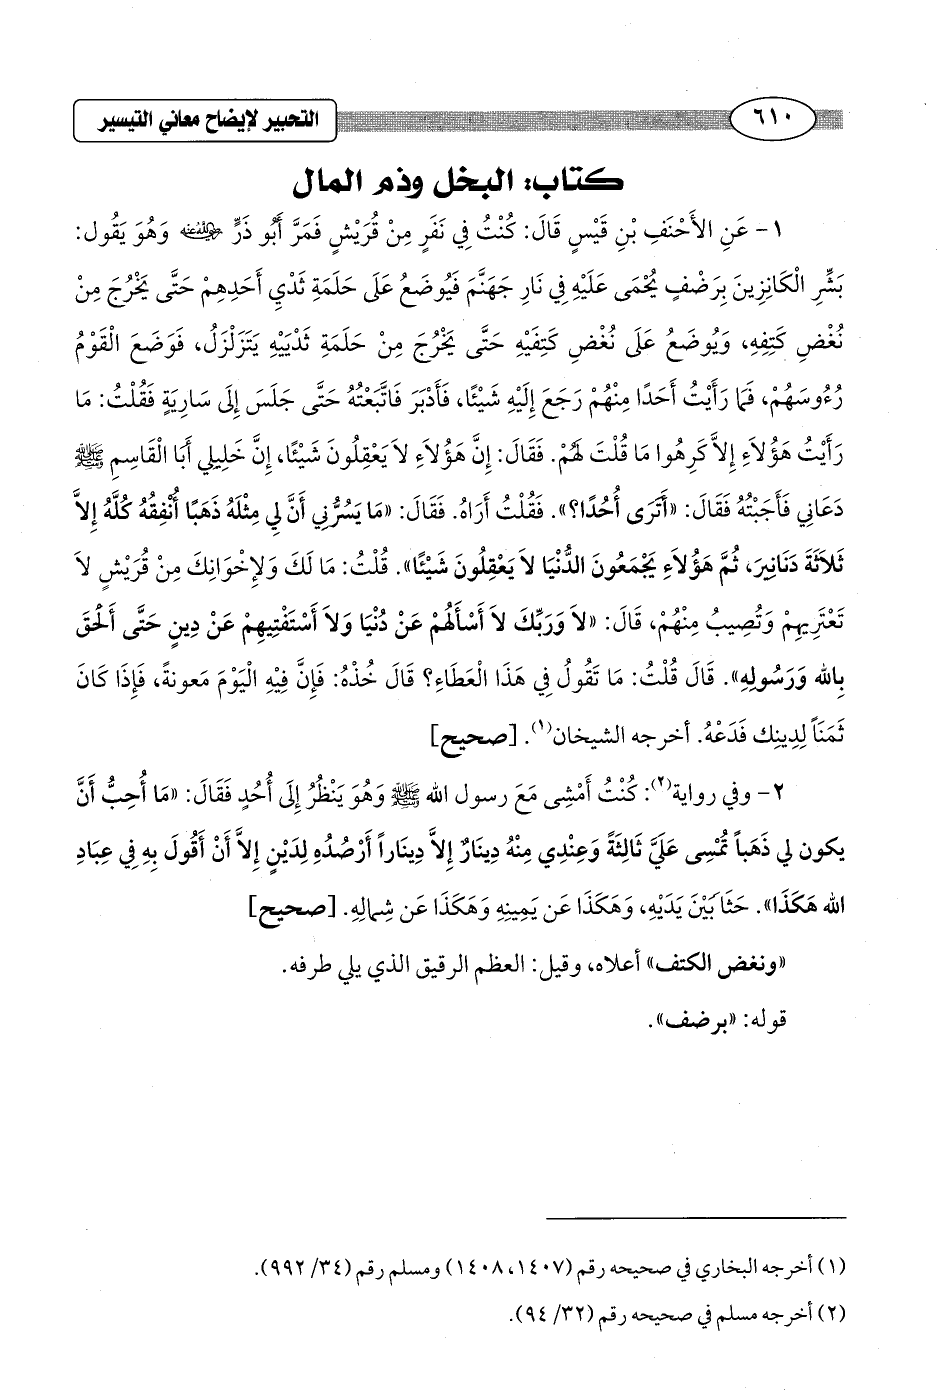 ٦١٠
التحبير لإيضاح معاني التيسير
كتاب: البخل وذم المال
١- عَنِ الأَحْنَفِ بْنِ قَيْسٍ قَالَ: كُنْتُ فِي نَفَرٍ مِنْ قُرَيْشٍ فَمَرَّ أَبُو ذَرٍّ رضي الله عنه وَهُوَ يَقُول:
بَشِّرِ الْكَانِزِينَ بِرَضْفٍ يُحْمَى عَلَيْهِ فِي نَارِ جَهَنَّمَ فَيُوضَعُ عَلَى حَلَمَةِ ثَدْيِ أَحَدِهِمْ حَتَّى يَخْرُجَ مِنْ
نُغْضِ كَتِفِهِ، وَيُوضَعُ عَلَى نُغْضِ كَتِفَيْهِ حَتَّى يَخْرُجَ مِنْ حَلَمَةِ ثَدْيَيْهِ يَتَزَلْزَلُ، فَوَضَعَ الْقَوْمُ
رُءُوسَهُمْ، فَمَا رَأَيْتُ أَحَدًا مِنْهُمْ رَجَعَ إِلَيْهِ شَيْئًا، فَأَدْبَرَ فَاتَّبَعْتُهُ حَتَّى جَلَسَ إِلَى سَارِيَةٍ فَقُلْتُ: مَا
رَأَيْتُ هَؤُلَاءِ إِلاَّ كَرِهُوا مَا قُلْتَ لَهُمْ. فَقَالَ: إِنَّ هَؤُلَاءِ لاَ يَعْقِلُونَ شَيْئًا، إِنَّ خَلِيلِي أَبَا الْقَاسِمِ ﷺ
دَعَانِي فَأَجَبْتُهُ فَقَالَ: «أَتَرَى أُحُدًا؟». فَقُلْتُ أَرَاهُ. فَقَالَ: «مَا يَسُرُّنِي أَنَّ لِي مِثْلَهُ ذَهَبًا أُنْفِقُهُ كُلَّهُ إِلاَّ
ثَلاَثَةَ دَنَانِيرَ، ثُمَّ هَؤُلَاءِ يَجْمَعُونَ الدُّنْيَا لاَ يَعْقِلُونَ شَيْئًا». قُلْتُ: مَا لَكَ وَلإِخْوَانِكَ مِنْ قُرَيْشٍ لاَ
تَعْتَرِيهِمْ وَتُصِيبُ مِنْهُمْ، قَالَ: «لاَ وَرَبِّكَ لاَ أَسْأَلُهُمْ عَنْ دُنْيَا وَلاَ أَسْتَفْتِيهِمْ عَنْ دِينٍ حَتَّى أَلْحَقَ
بِالله وَرَسُولِهِ». قَالَ قُلْتُ: مَا تَقُولُ فِي هَذَا الْعَطَاءِ؟ قَالَ خُذْهُ: فَإِنَّ فِيهِ الْيَوْمَ مَعونةً، فَإِذَا كَانَ
ثَمَنَاً لِدِينِك فَدَعْهُ. أخرجه الشيخان(١). [صحيح]
٢- وفي رواية(٢): كُنْتُ أَمْشِى مَعَ رسول الله ﷺ وَهُوَ يَنْظُرُ إِلَى أُحُدٍ فَقَالَ: «مَا أُحِبُّ أَنَّ
يكون لي ذَهَباً تُمْسِى عَلَيَّ ثَالِثَةً وَعِنْدِي مِنْهُ دِينَارٌ إِلاَّ دِينَاراً أَرْصُدُهِ لِدَيْنٍ إِلاَّ أَنْ أَقُولَ بِهِ فِي عِبَادِ
الله هَكَذَا». حَثَا بَيْنَ يَدَيْهِ، وَهَكَذَا عَن يَمِينِهِ وَهَكَذَا عَن شِمالِهِ. [صحيح]
«ونغض الكتف» أعلاه، وقيل: العظم الرقيق الذي يلي طرفه.
قوله: «برضف».
(١) أخرجه البخاري في صحيحه رقم (١٤٠٧، ١٤٠٨) ومسلم رقم (٣٤/ ٩٩٢).
(٢) أخرجه مسلم في صحيحه رقم (٣٢/ ٩٤).